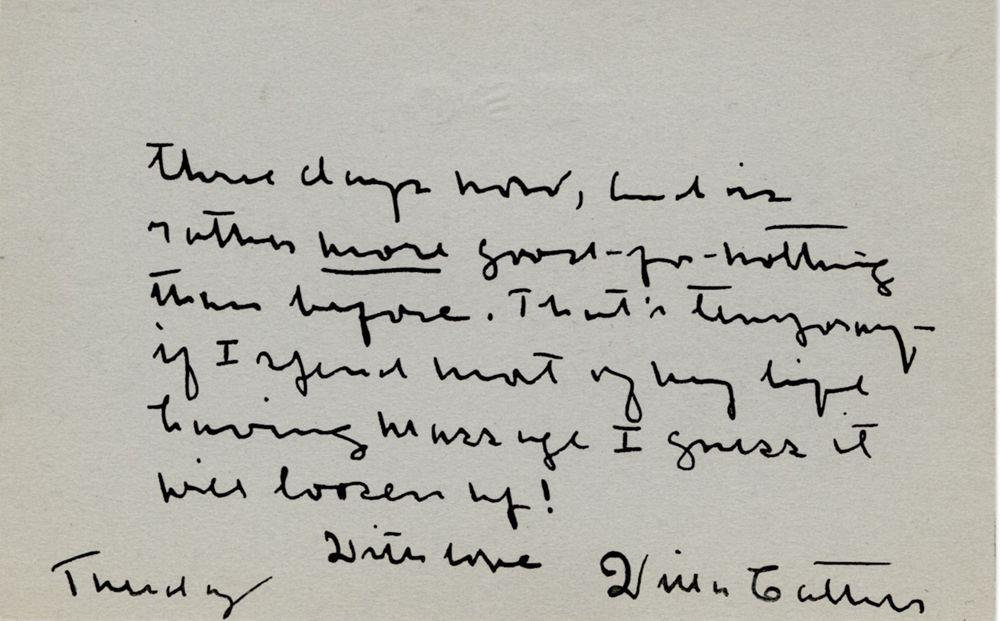 three days now, and is
rather more good-for-nothing
than before. That's temporary -
if I spend most of my life
having massage I guess it
will loosen up!
With love
Willa Cather
Tuesday